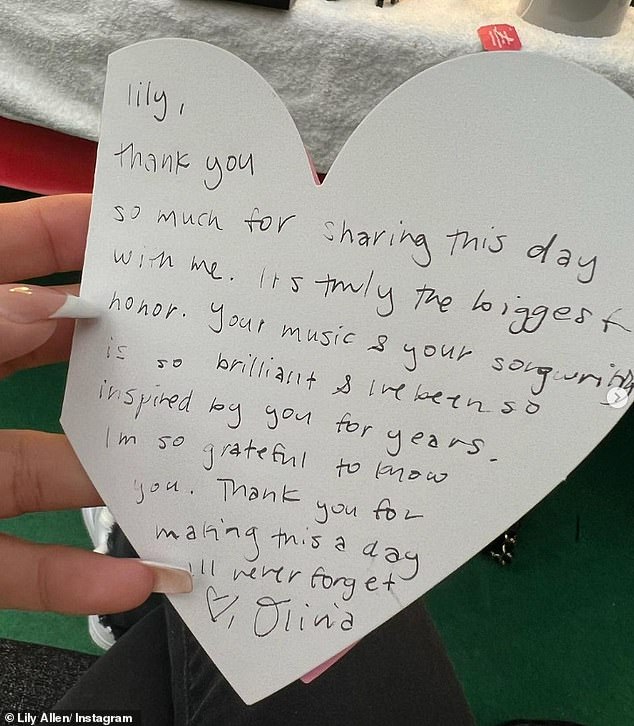 lily,
thank you
so much for sharing this day
with me. It's truly the biggest
honor. Your music & your songwriting
is so brilliant & I've been so
inspired by you for years.
Im so grateful to know
you. Thank you for
making this a day
ill never forget
♡, Olivia
© Lily Allen/ Instagram